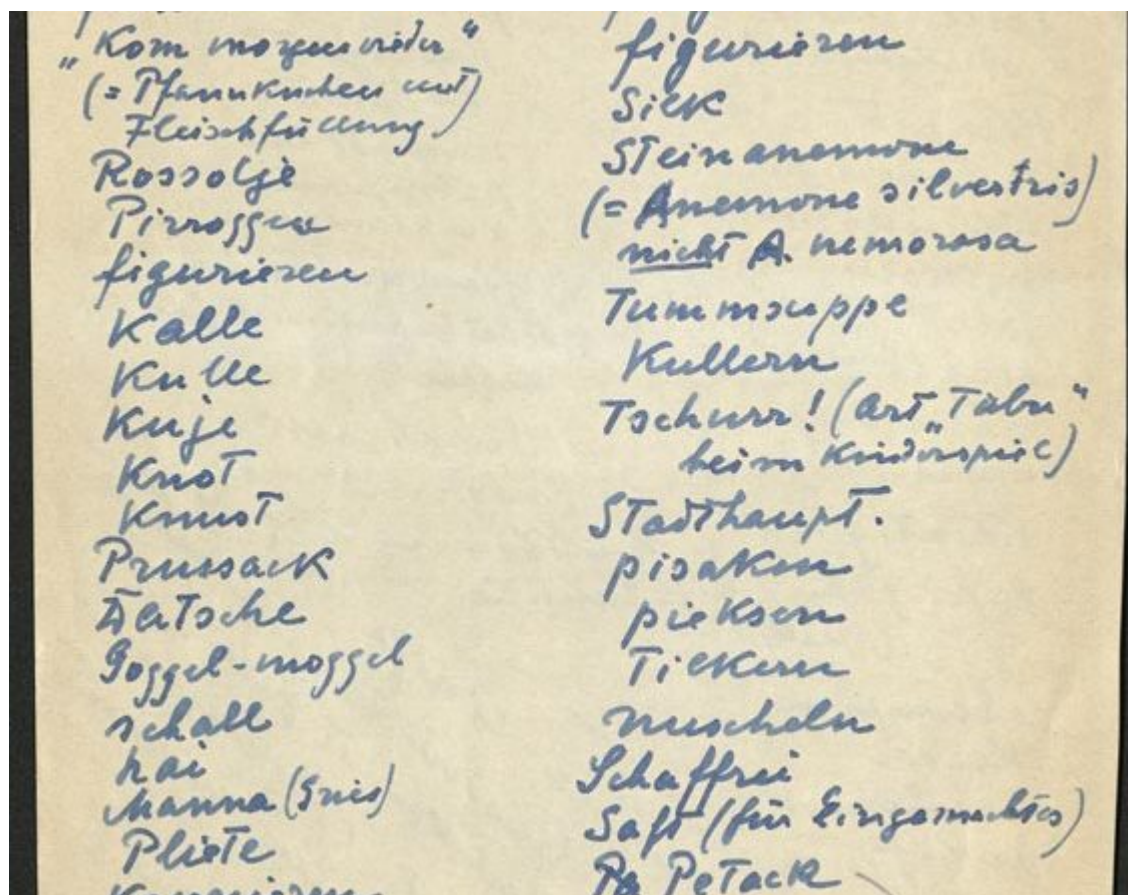 "Kom morgen wieder"
(= Pfannkuchen mit
Fleischfüllung)
Rossolje
Piroggen
figurieren
Kalle
Kulle
Kuje
Knot
Knust
Prussack
Datsche
Goggel-moggel
schall
hai
Manna (Gries)
Pliete
figurieren
Silk
Steinanemone
(= Anemone silvestris)
nicht A. nemorosa
Tummsuppe
Kullern
Tschurr! (Art "Tabu"
beim Kinderspiel)
Stadthaupt.
pisaken
pieksen
Tilkern
nuscheln
Schafferei
Saft (für Eingemachtes)
Petack